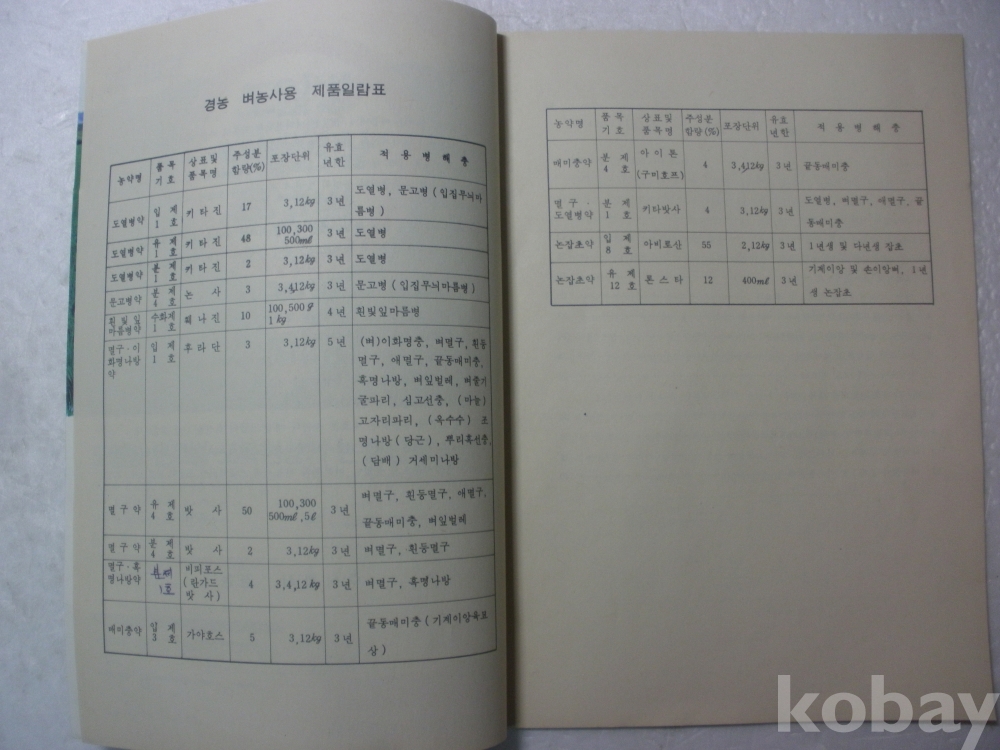 경농 벼농사용 제품일람표
농약명 품목기호 상표및품목명 주성분함량(%) 포장단위 유효년한 적용병해충
도열병약 입제1호 키타진 17 3,12kg 3년 도열병, 문고병(잎집무늬마름병)
도열병약 유제1호 키타진 48 100,300 500ml 3년 도열병
도열병약 분제1호 키타진 2 3,12kg 3년 도열병
문고병약 분제4호 논사 3 3,4,12kg 3년 문고병(잎집무늬마름병)
흰빛잎마름병약 수화제1호 훼나진 10 100,500g 1kg 4년 흰빛잎마름병
멸구·이화명나방약 입제1호 후라단 3 3,12kg 5년 (벼)이화명충, 벼멸구, 흰등
멸구, 애멸구, 끝동매미충,
혹명나방, 벼잎벌레, 벼줄기
굴파리, 심고선충, (마늘)
고자리파리, (옥수수) 조
명나방(당근), 뿌리혹선충,
(담배) 거세미나방
멸구약 유제4호 밧사 50 100,300 500ml,5l 3년 벼멸구, 흰등멸구, 애멸구,
끝동매미충, 벼잎벌레
멸구약 분제4호 밧사 2 3,12kg 3년 벼멸구, 흰등멸구
멸구·혹명나방약 분제1호 비피포스(란가드밧사) 4 3,4,12kg 3년 벼멸구, 혹명나방
매미충약 입제3호 가야포스 5 3,12kg 3년 끝동매미충(기계이앙육묘
상)
농약명 품목기호 상표및품목명 주성분함량(%) 포장단위 유효년한 적용병해충
매미충약 분제4호 마이톤(구미호프) 4 3,4,12kg 3년 끝동매미충
멸구·도열병약 분제1호 키타밧사 4 3,12kg 3년 도열병, 벼멸구, 애멸구, 끝
동매미충
논잡초약 입제8호 아비로산 55 2,12kg 3년 1년생 및 다년생 잡초
논잡초약 유제12호 론스타 12 400ml 3년 기계이앙 및 손이앙벼, 1년
생 논잡초
kobay